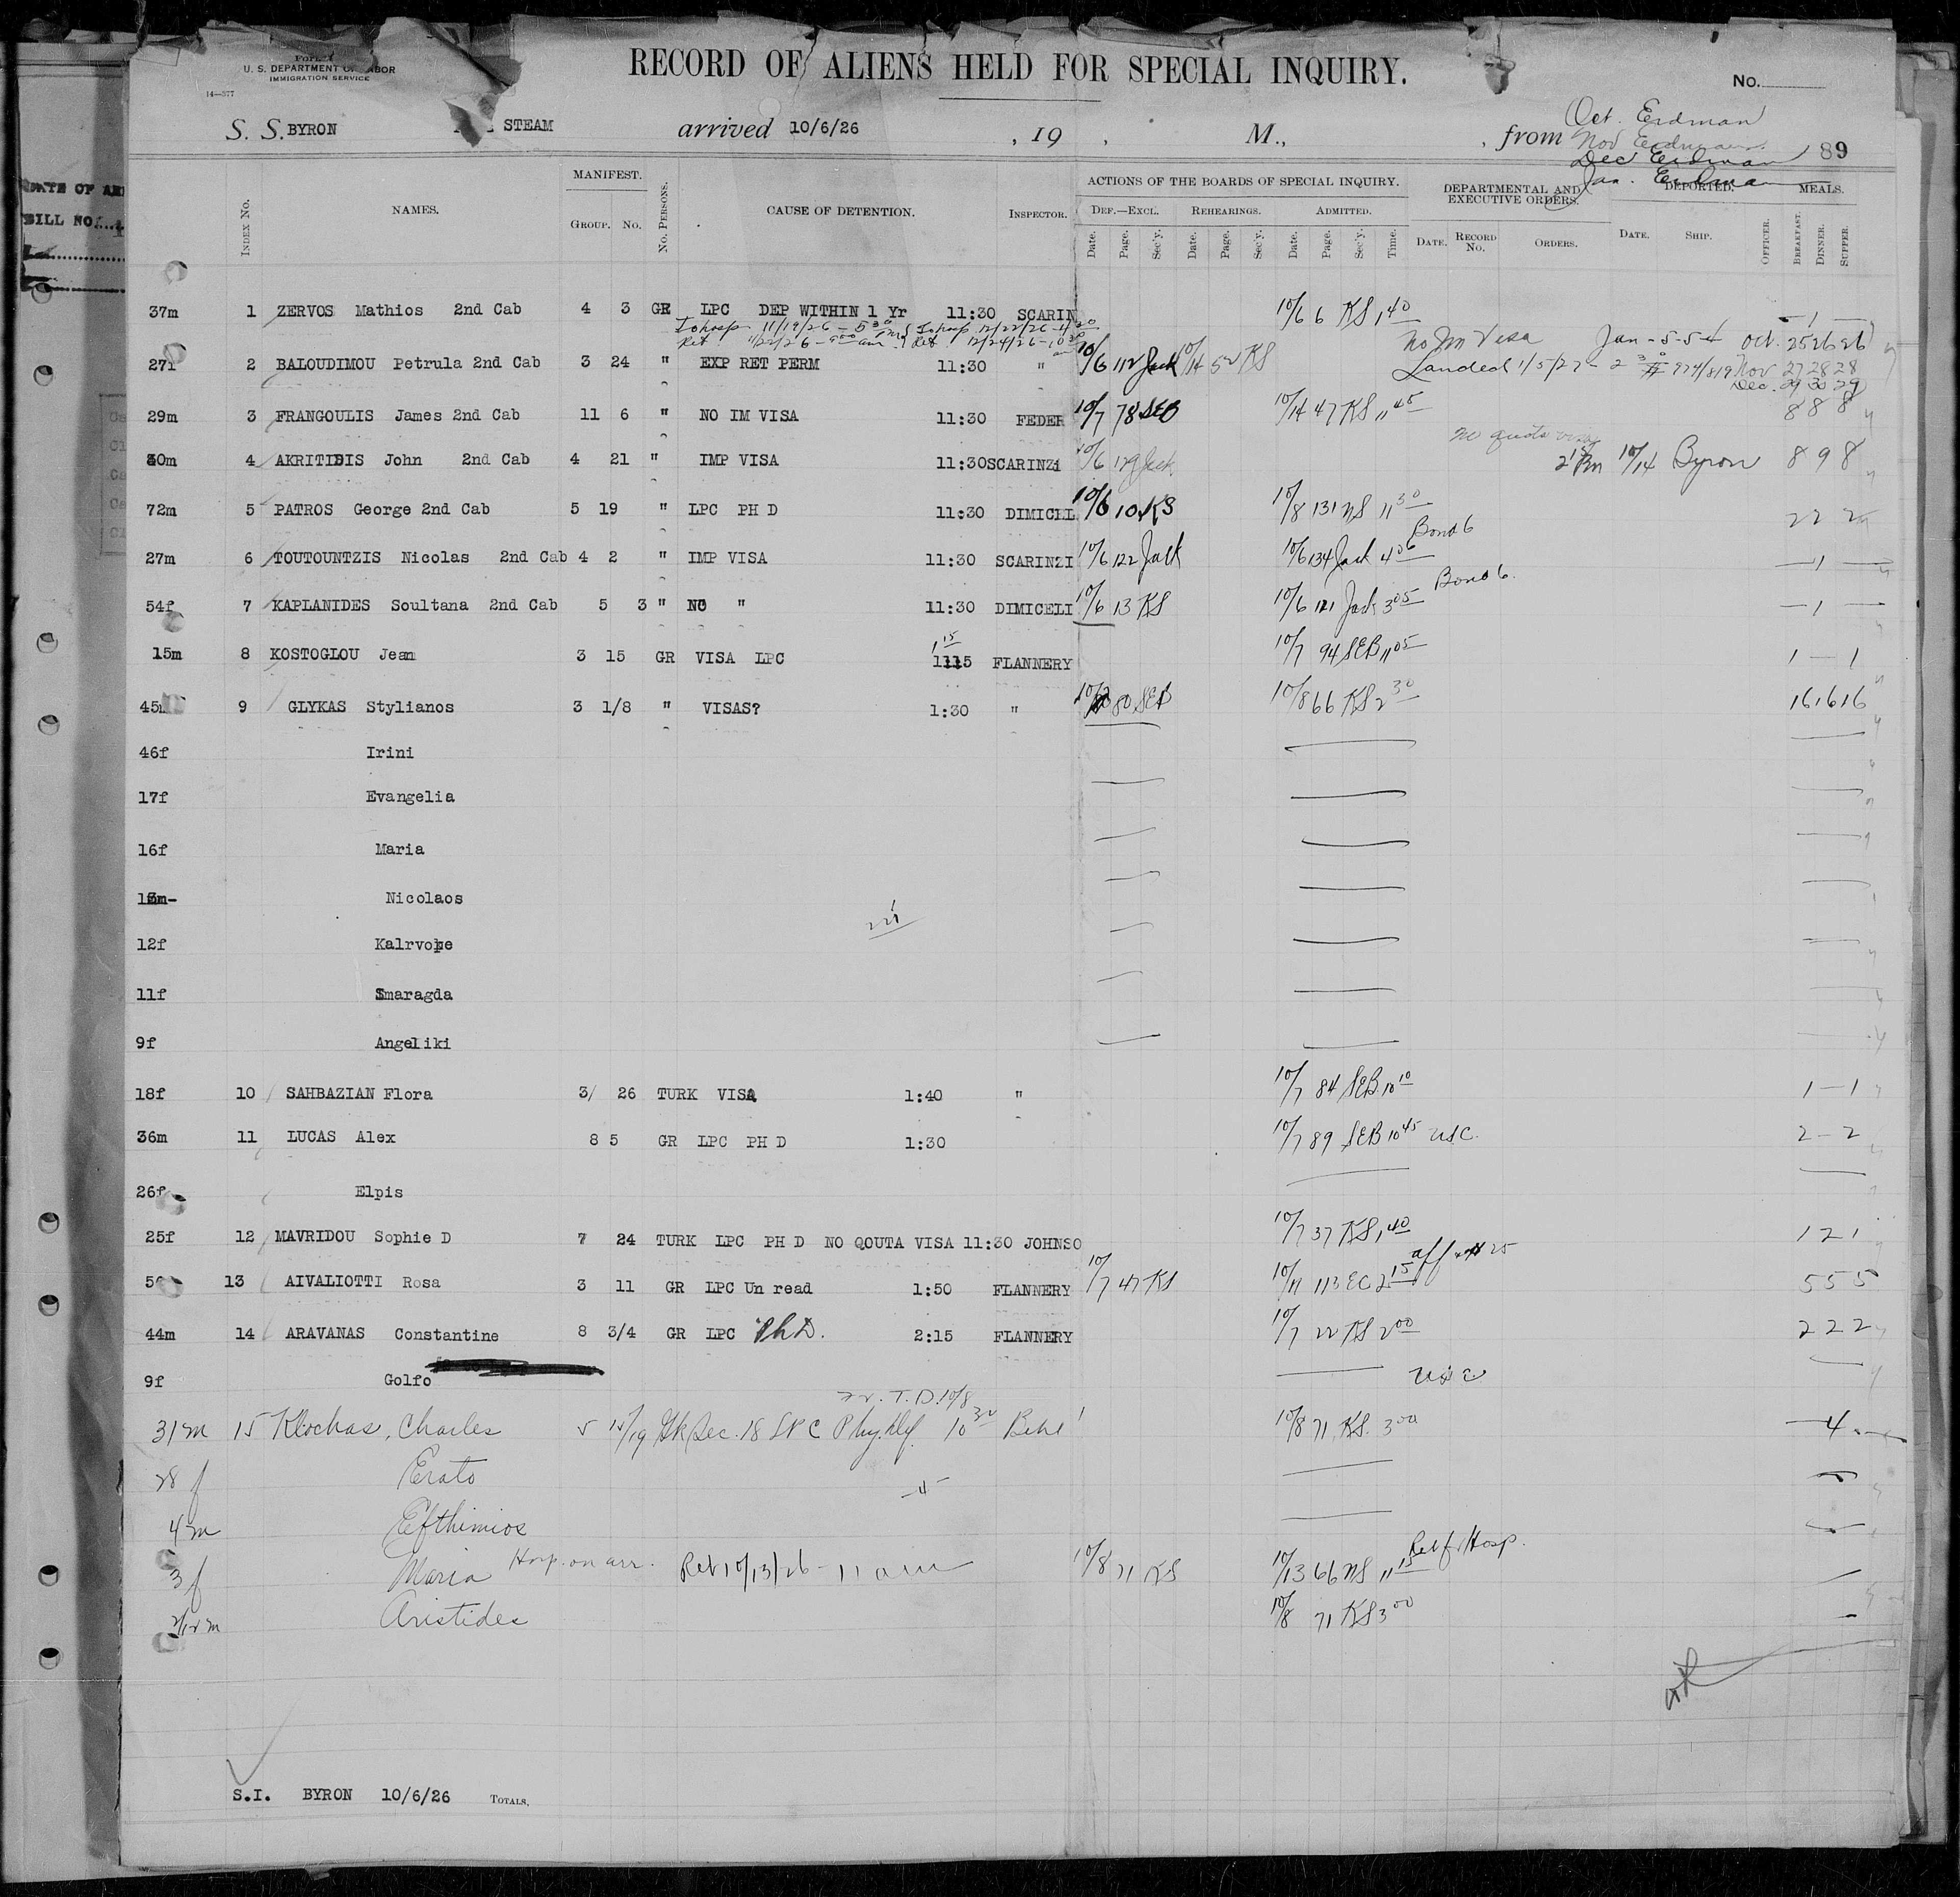 Form
U. S. DEPARTMENT OF LABOR
IMMIGRATION SERVICE
14—377
RECORD OF ALIENS HELD FOR SPECIAL INQUIRY.
No.
S. S. BYRON STEAM arrived 10/6/26 , 19 , M., , from
Oct. Erdman
Nov Erdman
Dec Erdman
Jan. Erdman
89
DATE OF
BILL NO.
INDEX No. NAMES. MANIFEST. GROUP. No. No. PERSONS. CAUSE OF DETENTION. INSPECTOR. ACTIONS OF THE BOARDS OF SPECIAL INQUIRY. DEPARTMENTAL AND EXECUTIVE ORDERS. DEPORTED. MEALS.
DEF.—EXCL. REHEARINGS. ADMITTED.
Date. Page. Sec'y. Date. Page. Sec'y. Date. Page. Sec'y. Time. DATE. RECORD No. ORDERS. DATE. SHIP. OFFICER. BREAKFAST. DINNER. SUPPER.
37m 1 ZERVOS Mathios 2nd Cab 4 3 GR LPC DEP WITHIN 1 Yr 11:30 SCARIN 10/6 6 KS 1 40 — 1 —
To hosp 11/19/26 - 5 30 To hosp 12/22/26 - 4 30
Ret 11/22/26 - 9 00 am Ret 12/24/26 - 10
No Im Visa Jan - 5-5-4 Oct. 25 26 26
2 BALOUDIMOU Petrula 2nd Cab 3 24 " EXP RET PERM 11:30 " 10/6 112 Jack 10/14 52 KS Landed 1/5/27 - 2 30 Nov 27 28 28
Dec. 29 30 29
29m 3 FRANGOULIS James 2nd Cab 11 6 " NO IM VISA 11:30 FEDER 10/7 78 SEB 10/14 47 KS 11 45 8 8 8
no quota visa
30m 4 AKRITIDIS John 2nd Cab 4 21 " IMP VISA 11:30 SCARINZi 10/6 129 Jack 10/14 Byron 8 9 8
72m 5 PATROS George 2nd Cab 5 19 " LPC PH D 11:30 DIMICEL 10/6 10 KS 10/8 131 NS 11 30 22 2
Bond 6
27m 6 TOUTOUNTZIS Nicolas 2nd Cab 4 2 " IMP VISA 11:30 SCARINZI 10/6 122 Jack 10/6 134 Jack — 1 —
Bond 6.
54f 7 KAPLANIDES Soultana 2nd Cab 5 3 " NO " 11:30 DIMICELI 10/6 13 KS 10/6 121 Jack 3 05 — 1 —
15m 8 KOSTOGLOU Jean 3 15 GR VISA LPC 1 15 FLANNERY 10/7 94 SEB 11 05 1 — 1
9 GLYKAS Stylianos 3 1/8 " VISAS? 1:30 " 80 SEB 10/8 66 KS 2 30 16 16 16
46f Irini
17f Evangelia
16f Maria
Nicolaos
12f Kalrvope
11f Smaragda
9f Angeliki
18f 10 SAHBAZIAN Flora 3/ 26 TURK VISA 1:40 " 10/7 84 SEB 10 10 1 — 1
36m 11 LUCAS Alex 8 5 GR LPC PH D 1:30 10/7 89 SEB 10 45 USC. 2 — 2
26f Elpis
25f 12 MAVRIDOU Sophie D 7 24 TURK LPC PH D NO QOUTA VISA 11:30 JOHNSO 10/7 37 KS 1 40 1 2 1
13 AIVALIOTTI Rosa 3 11 GR LPC Un read 1:50 FLANNERY 10/7 47 KS 10/11 113 EC 2 15 5 5 5
44m 14 ARAVANAS Constantine 8 3/4 GR LPC Ph D. 2:15 FLANNERY 10/7 22 KS 2 00 2 2 2
9f Golfo USC
T.D. 10/8
31m 15 Klochas, Charles 5 15/19 Gk Sec. 18 LPC Phy. 10 30 10/8 71 KS. 3 00 — 4 —
28 f Erato
4 m Efthimios
3 f Maria Hosp. on arr. Ret 10/13/26 - 11 am 10/8 71 KS 10/13 66 NS 11 15 Ret f Hosp.
Aristides 10/8 71 KS 3 00
S.I. BYRON 10/6/26 TOTALS.